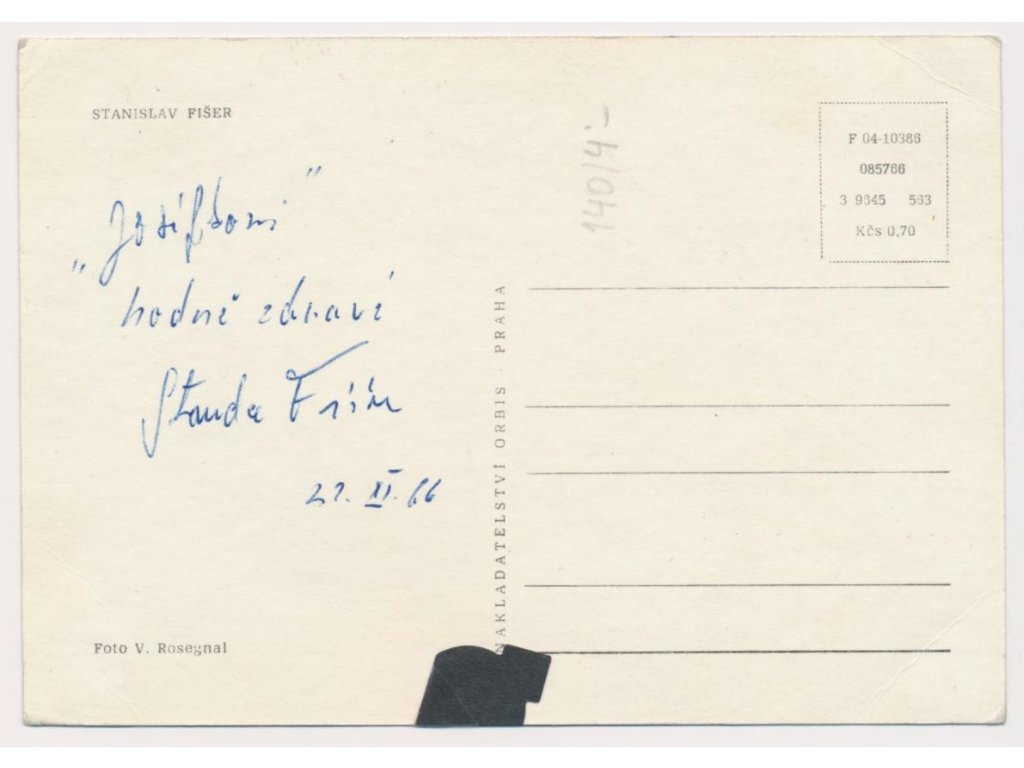 STANISLAV FIŠER
"
"
hodně zdraví
Standa Fišer
XI. 66
Foto V. Rosegnal
NAKLADATELSTVÍ ORBIS · PRAHA
140/4/-
F 04-10386
085766
3 9845 563
Kčs 0,70